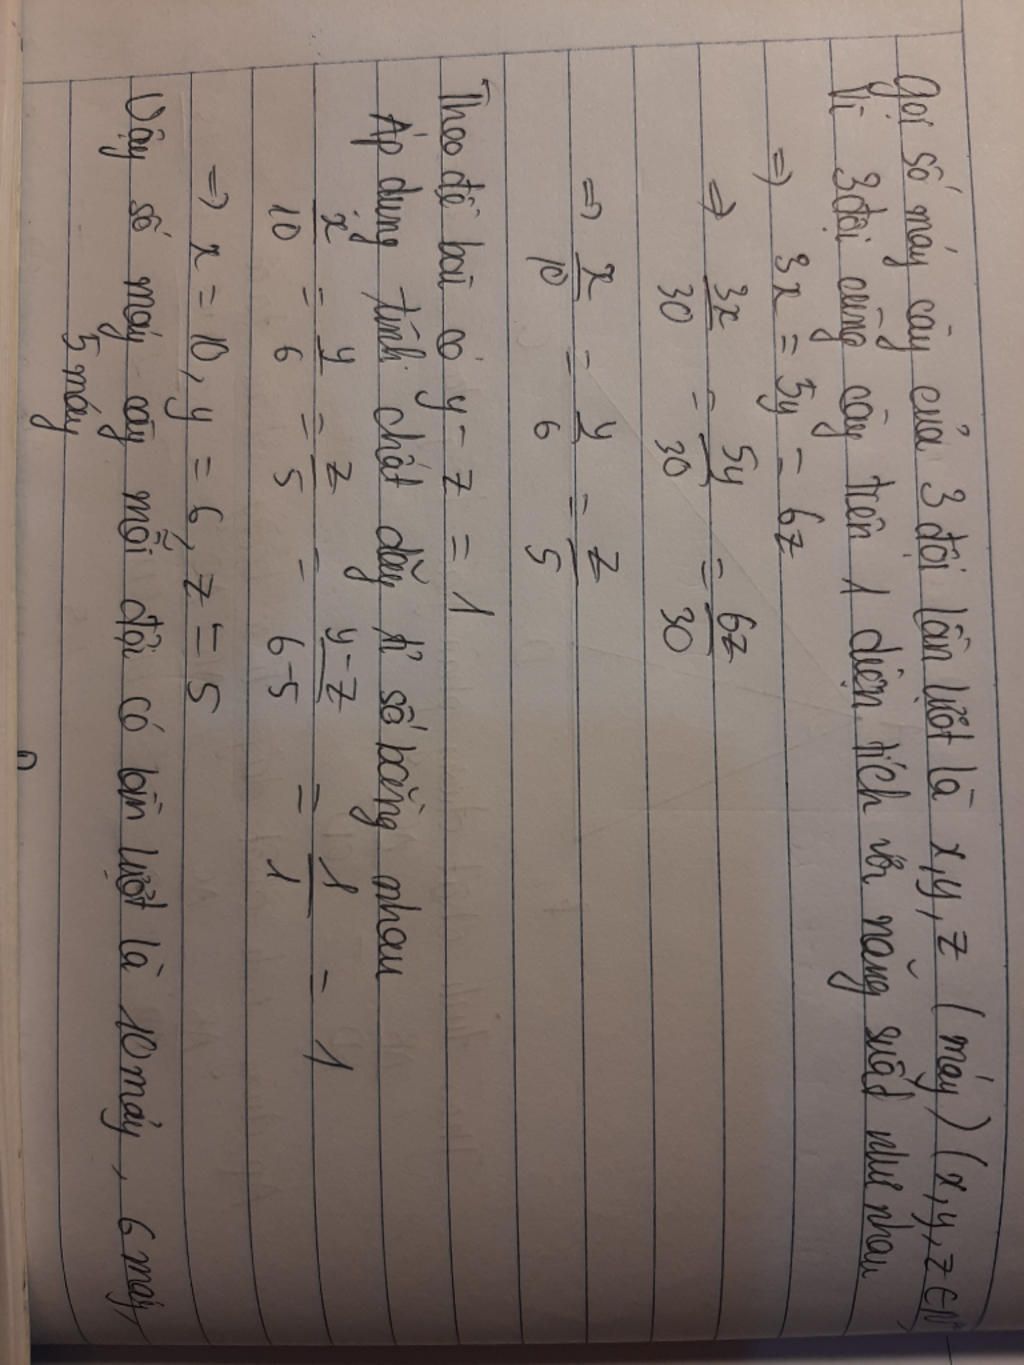 Gọi số máy cày của 3 đội lần lượt là x, y, z (máy) (x, y, z ∈ N*)
Vì 3 đội cùng cày trên 1 diện tích với năng suất như nhau
⇒ 3x = 5y = 6z
⇒ 3x/30 = 5y/30 = 6z/30
⇒ x/10 = y/6 = z/5
Theo đề bài có y - z = 1
Áp dụng tính chất dãy tỉ số bằng nhau
x/10 = y/6 = z/5 = y-z/6-5 = 1/1 = 1
⇒ x = 10, y = 6, z = 5
Vậy số máy cày mỗi đội có lần lượt là 10 máy, 6 máy,
5 máy